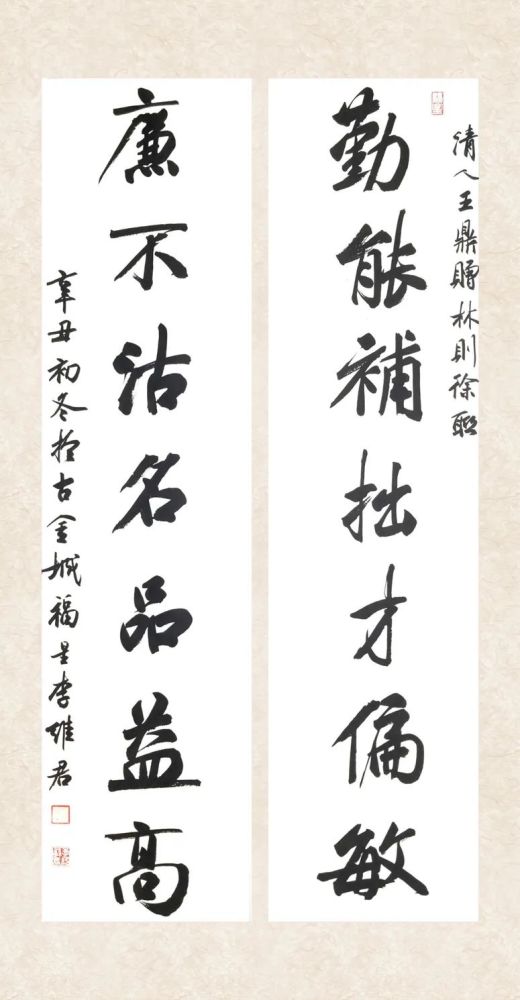 清人王鼎贈林则徐联
勤能補拙才偏敏
廉不沽名品益高
辛丑初冬於古金城福星李雄君